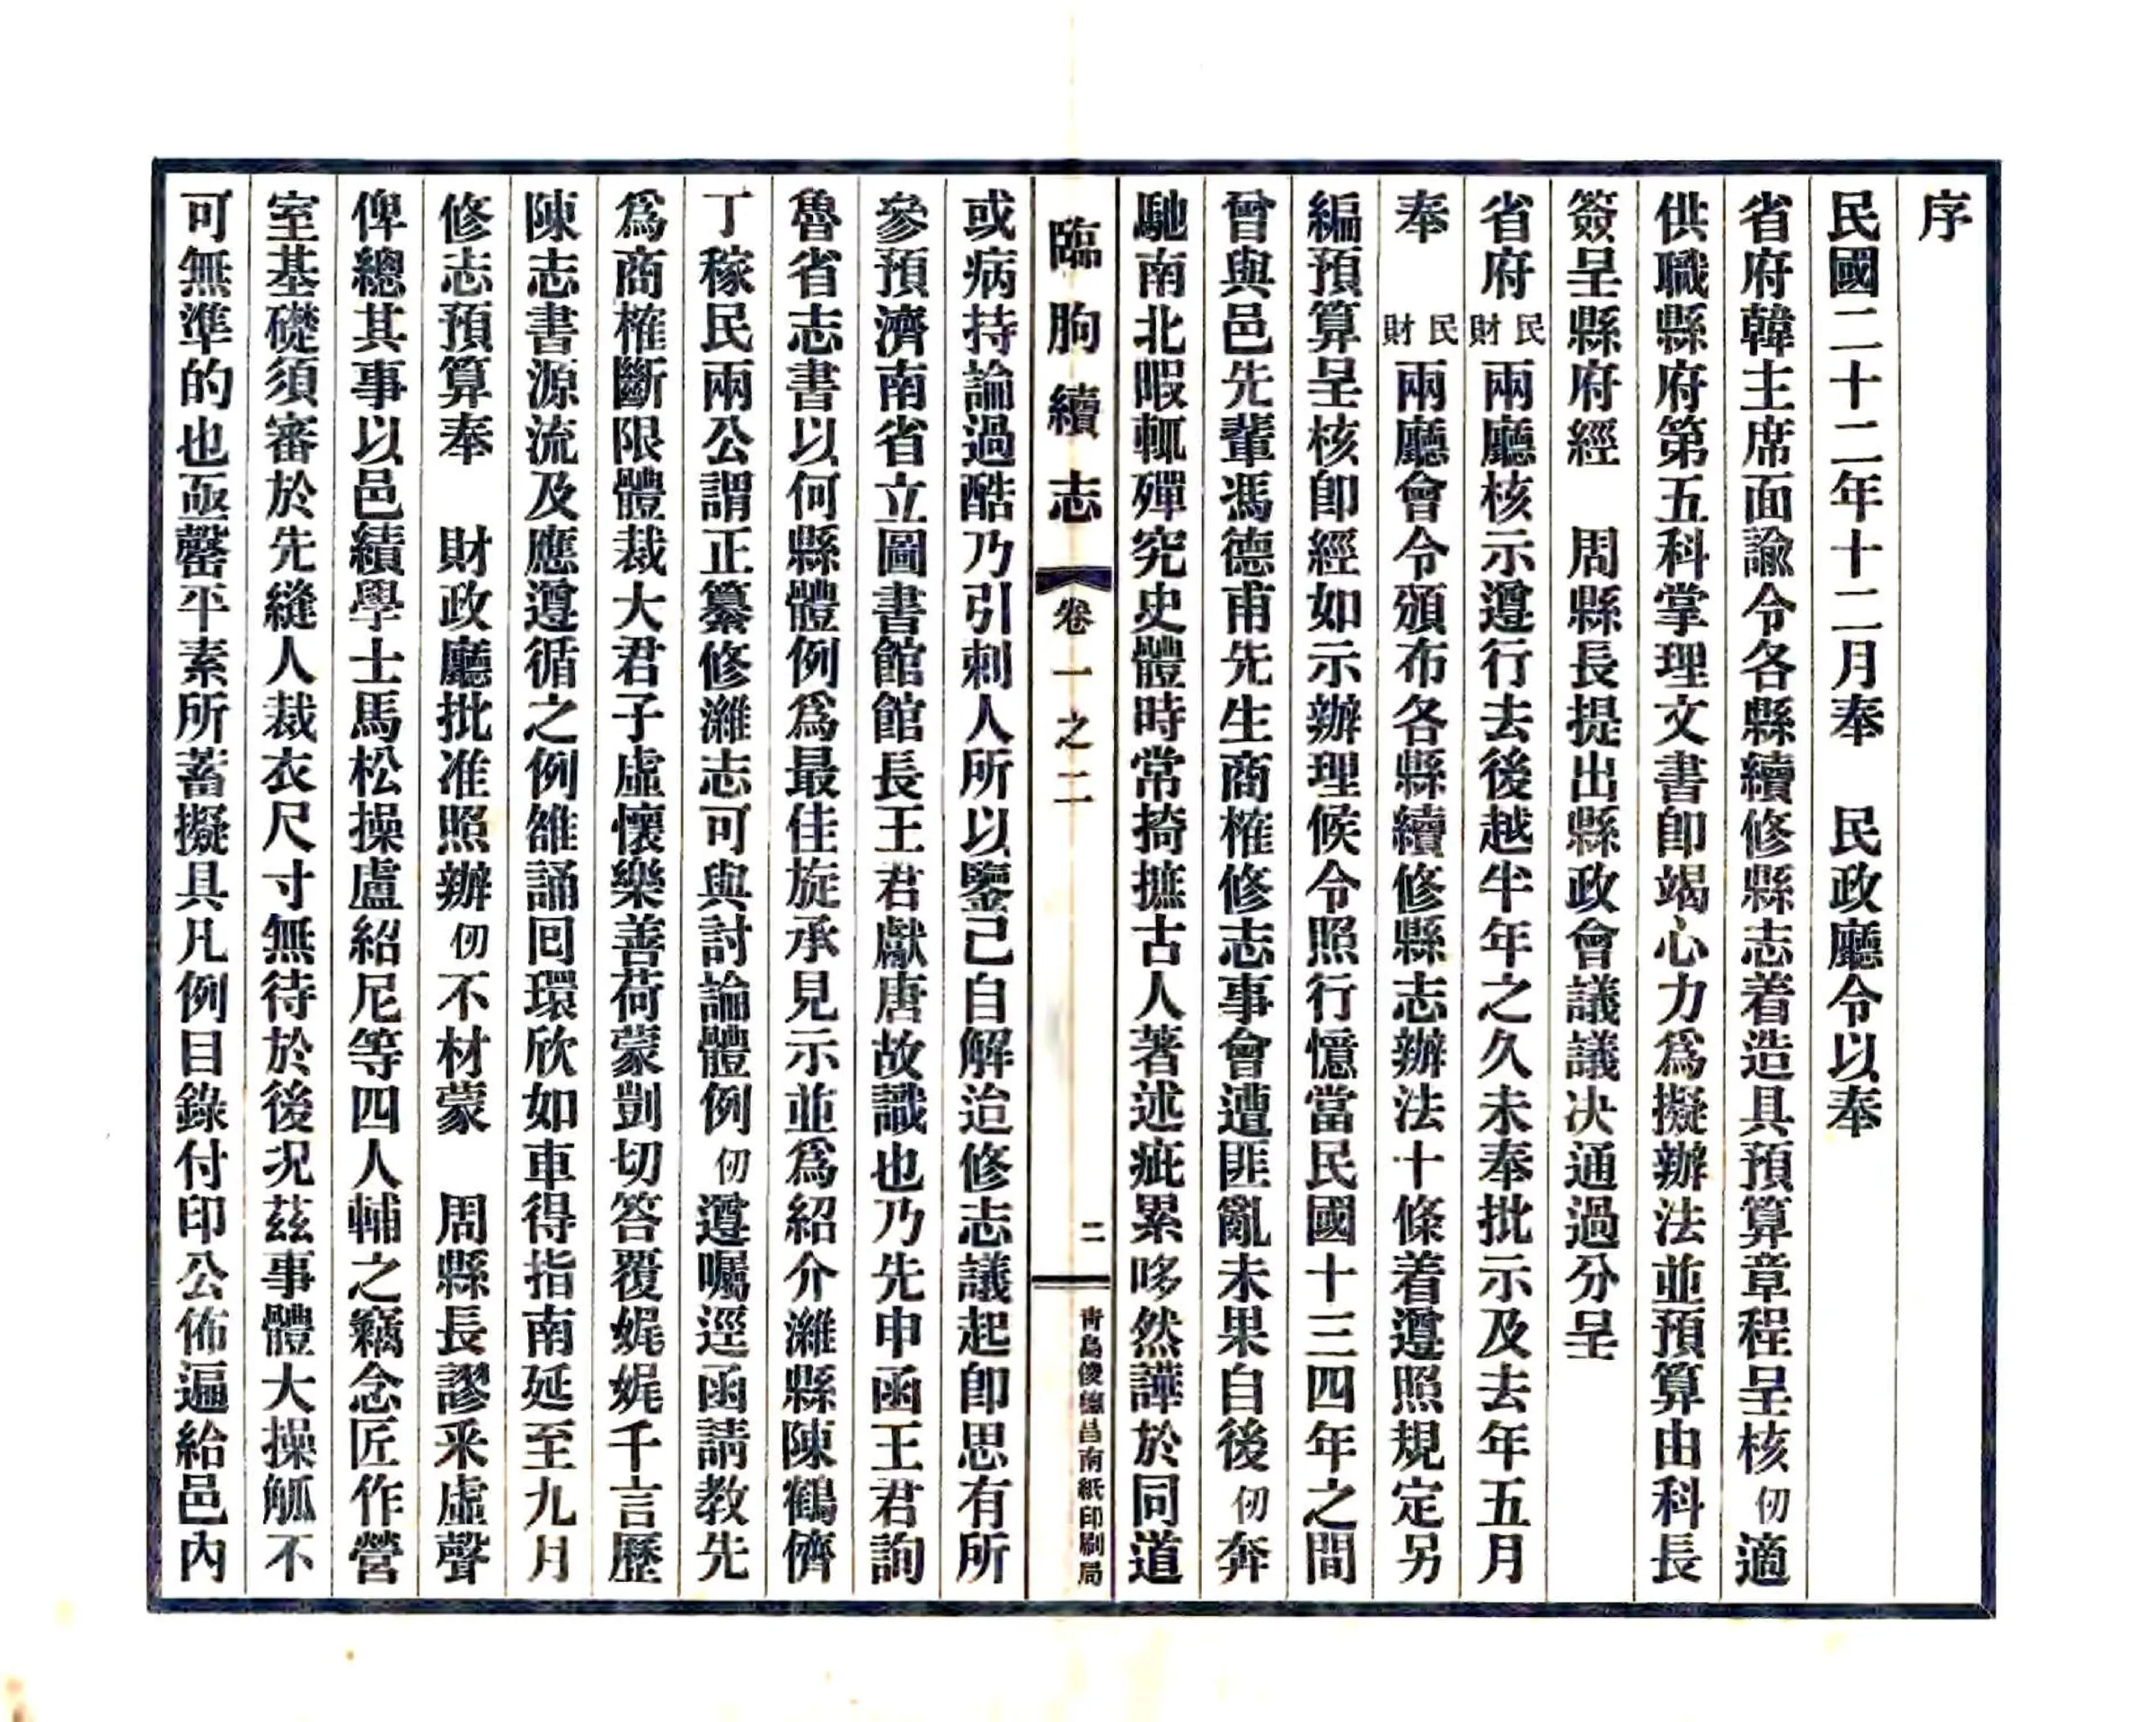 序
民國二十二年十二月奉　民政廳令以奉
省府韓主席面諭令各縣續修縣志着造具預算章程呈核仞適
供職縣府第五科掌理文書卽竭心力爲擬辦法並預算由科長
簽呈縣府經　周縣長提出縣政會議議决通過分呈
省府民財兩廳核示遵行去後越半年之久未奉批示及去年五月
奉　民財兩廳會令頒布各縣續修縣志辦法十條着遵照規定另
編預算呈核卽經如示辦理候令照行憶當民國十三四年之間
曾與邑先輩馮德甫先生商榷修志事會遭匪亂未果自後仞奔
馳南北暇輒殫究史體時常掎摭古人著述疵累哆然譁於同道
臨朐續志　卷一之二　二　青島俊德昌南紙印刷局
或病持論過酷乃引刺人所以鑒己自解迨修志議起卽思有所
參預濟南省立圖書館館長王君獻唐故識也乃先申函王君詢
魯省志書以何縣體例爲最佳旋承見示並爲紹介濰縣陳鶴儕
丁稼民兩公謂正纂修濰志可與討論體例仞遵囑逕函請教先
爲商榷斷限體裁大君子虛懷樂善荷蒙剴切答覆娓娓千言歷
陳志書源流及應遵循之例雒誦回環欣如車得指南延至九月
修志預算奉　財政廳批准照辦仞不材蒙　周縣長謬采虛聲
俾總其事以邑績學士馬松操盧紹尼等四人輔之竊念匠作營
室基礎須審於先縫人裁衣尺寸無待於後况茲事體大操觚不
可無準的也亟罄平素所蓄擬具凡例目錄付印公佈遍給邑內